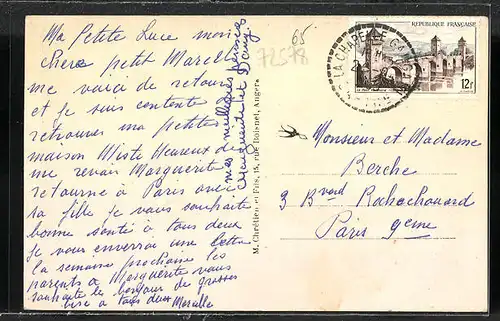 Ma Petite Luce mon
chere petit Marcel
me voici de retour
et je suis contente
retrouver ma petite
maison Miste Heureux de
me revoir Marguerite
retourne à Paris avec
sa fille je vous souhaite
bonne santé à tous deux
je vous enverrai une lettre
la semaine prochaine les
parents à Marguerite vous
souhaite le bonjour de grosses
bise à tous deux Marcelle
mes meilleures
Marguerite et Dany
M. Chrétien et Fils, 15, rue Boisnet, Angers
65
72578
LA CHAPELLE
REPUBLIQUE FRANÇAISE
12F
Monsieur et Madame
Berche
3 Bvard Rochechouard
Paris 9eme